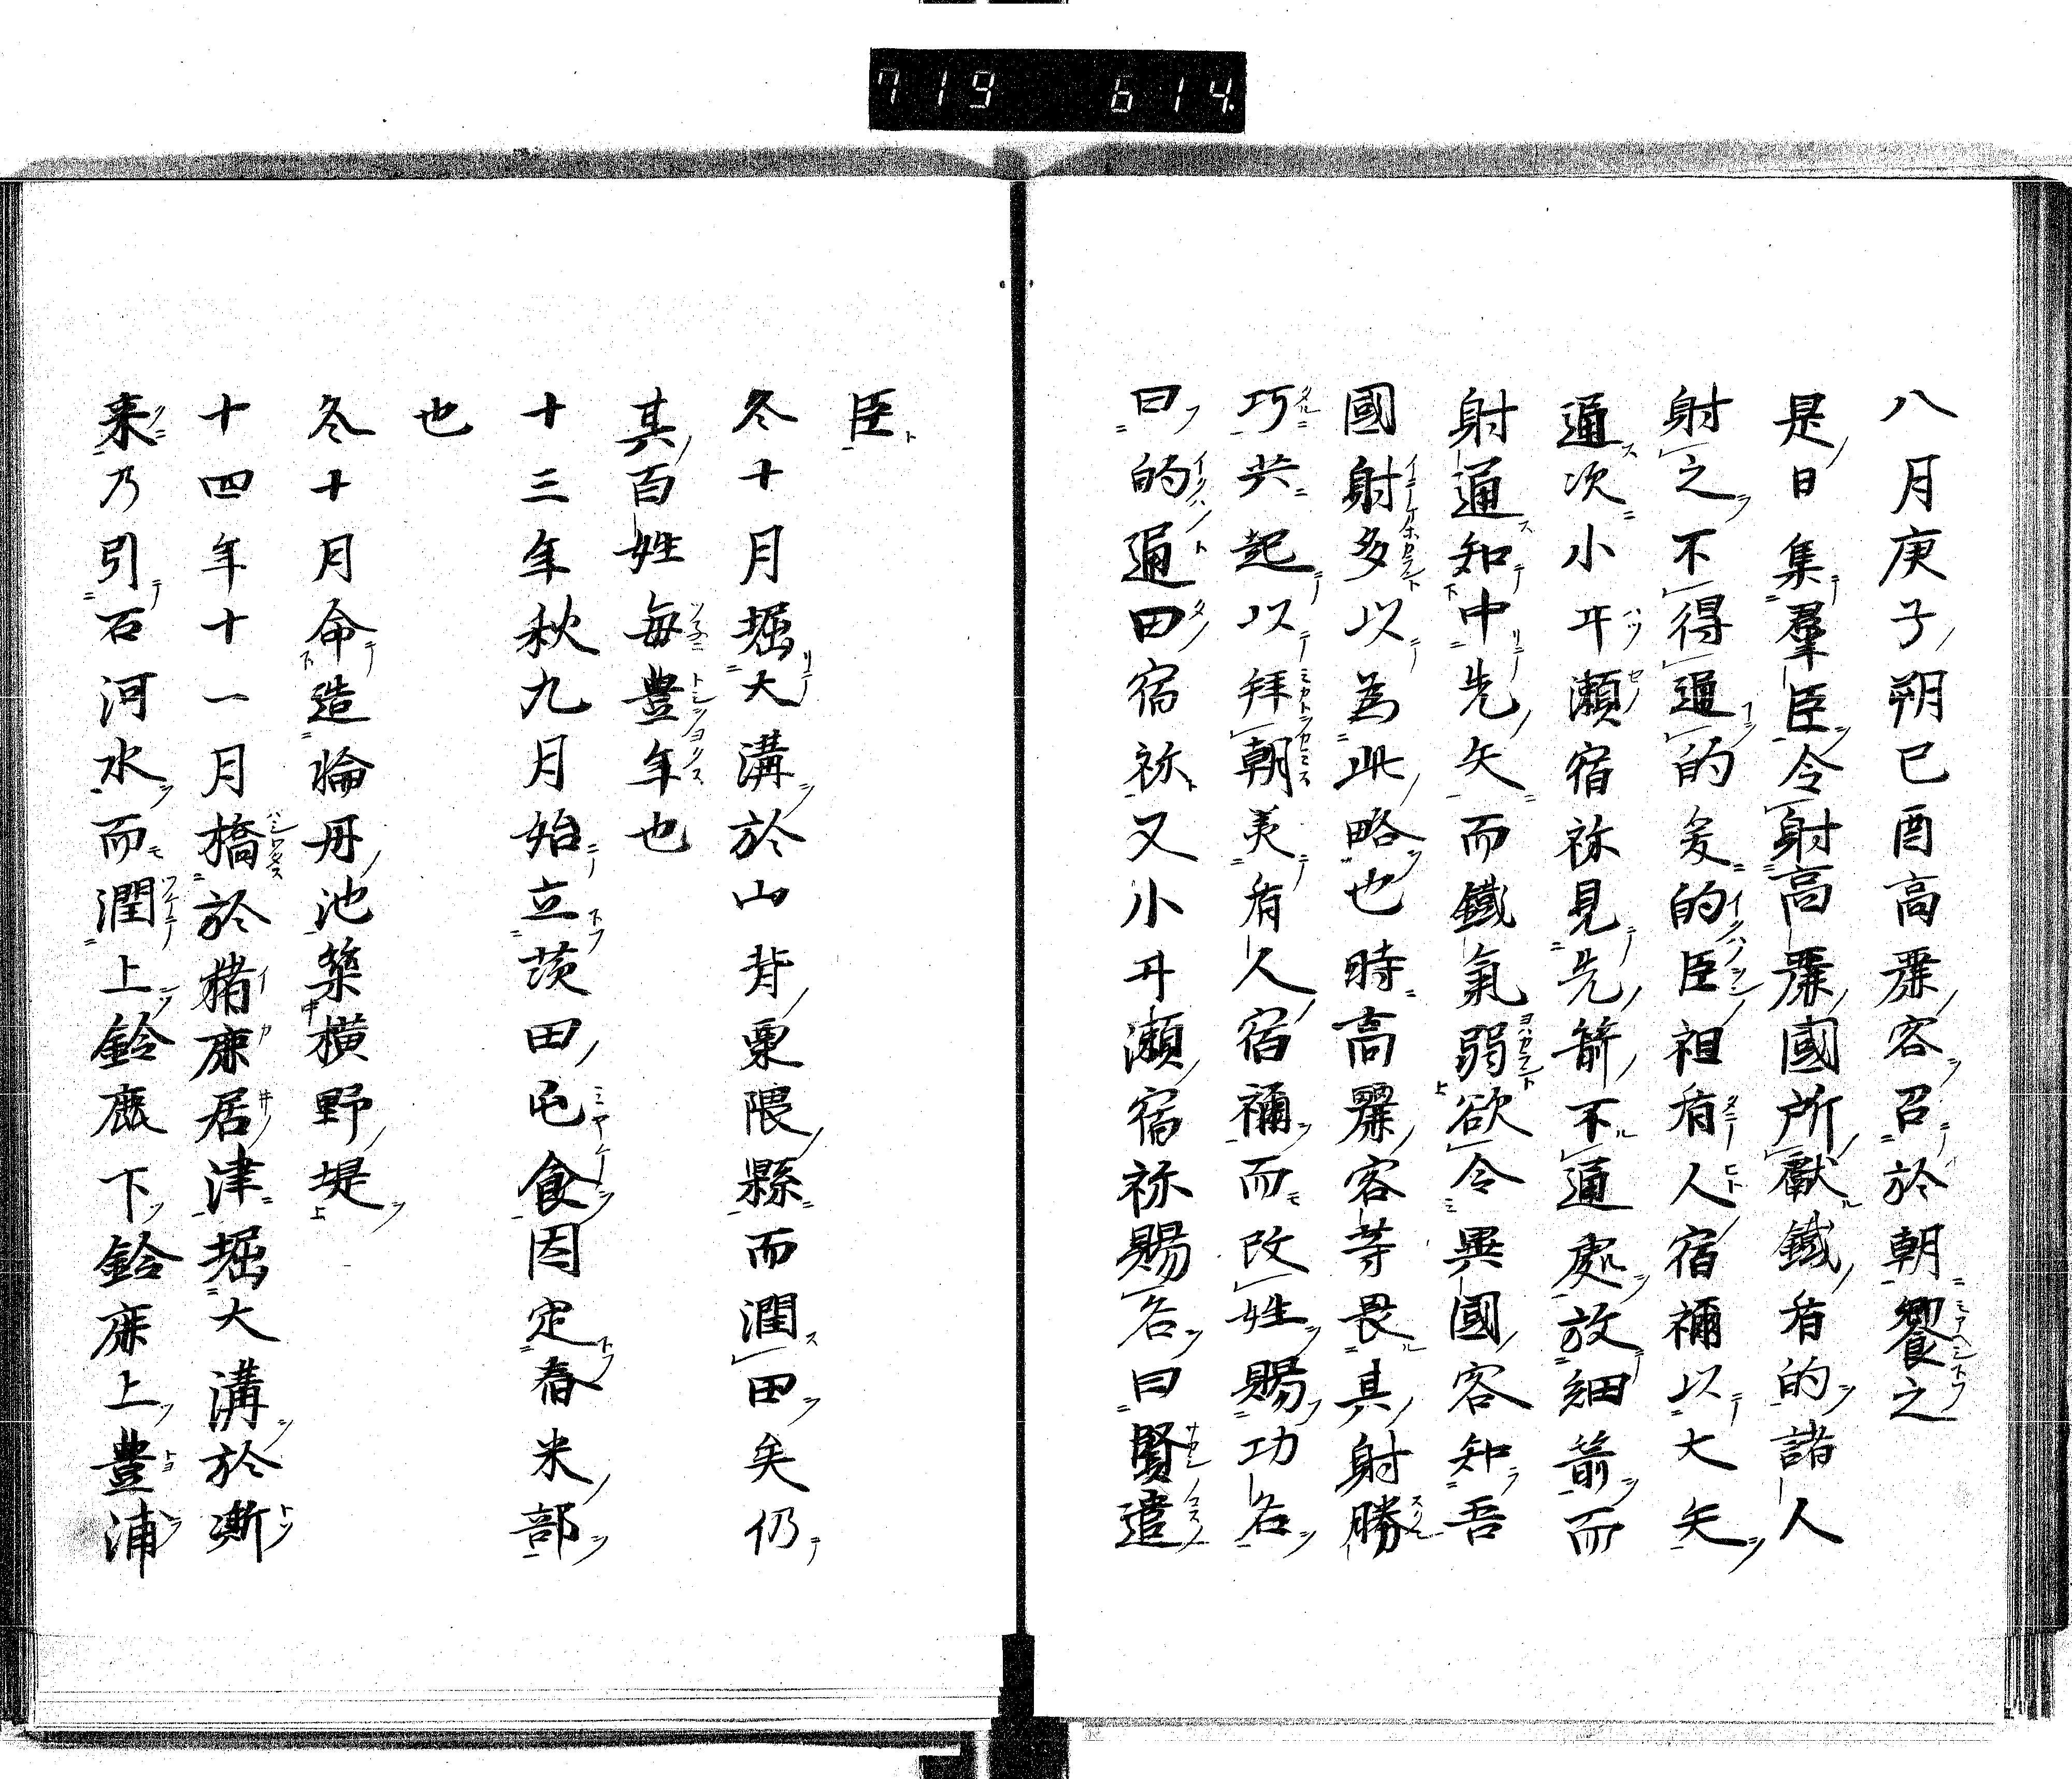 719 614.
八月庚子朔己酉高麗客召於朝饗之
是日集羣臣令射高麗國所獻鐵盾的諸人
射之不得通的爰的臣祖盾人宿禰以大矢
通次小平瀬宿祢見先箭不通處放細箭而
射通知中先矢而鐵氣弱欲令異國客知吾
國射多以為此略也時高麗客等畏其射勝
巧共起以拜朝美盾人宿禰而改姓賜功名
曰的通田宿祢又小平瀬宿祢賜名曰賢遣
臣
冬十月堀大溝於山背栗隈縣而潤田矣仍
其百姓毎豊年也
十三年秋九月始立茨田屯食因定舂米部
也
冬十月命造惀丹池築横野堤
十四年十一月橋於猪鹿居津堀大溝於漸
来乃引石河水而潤上鈴鹿下鈴鹿上豊浦